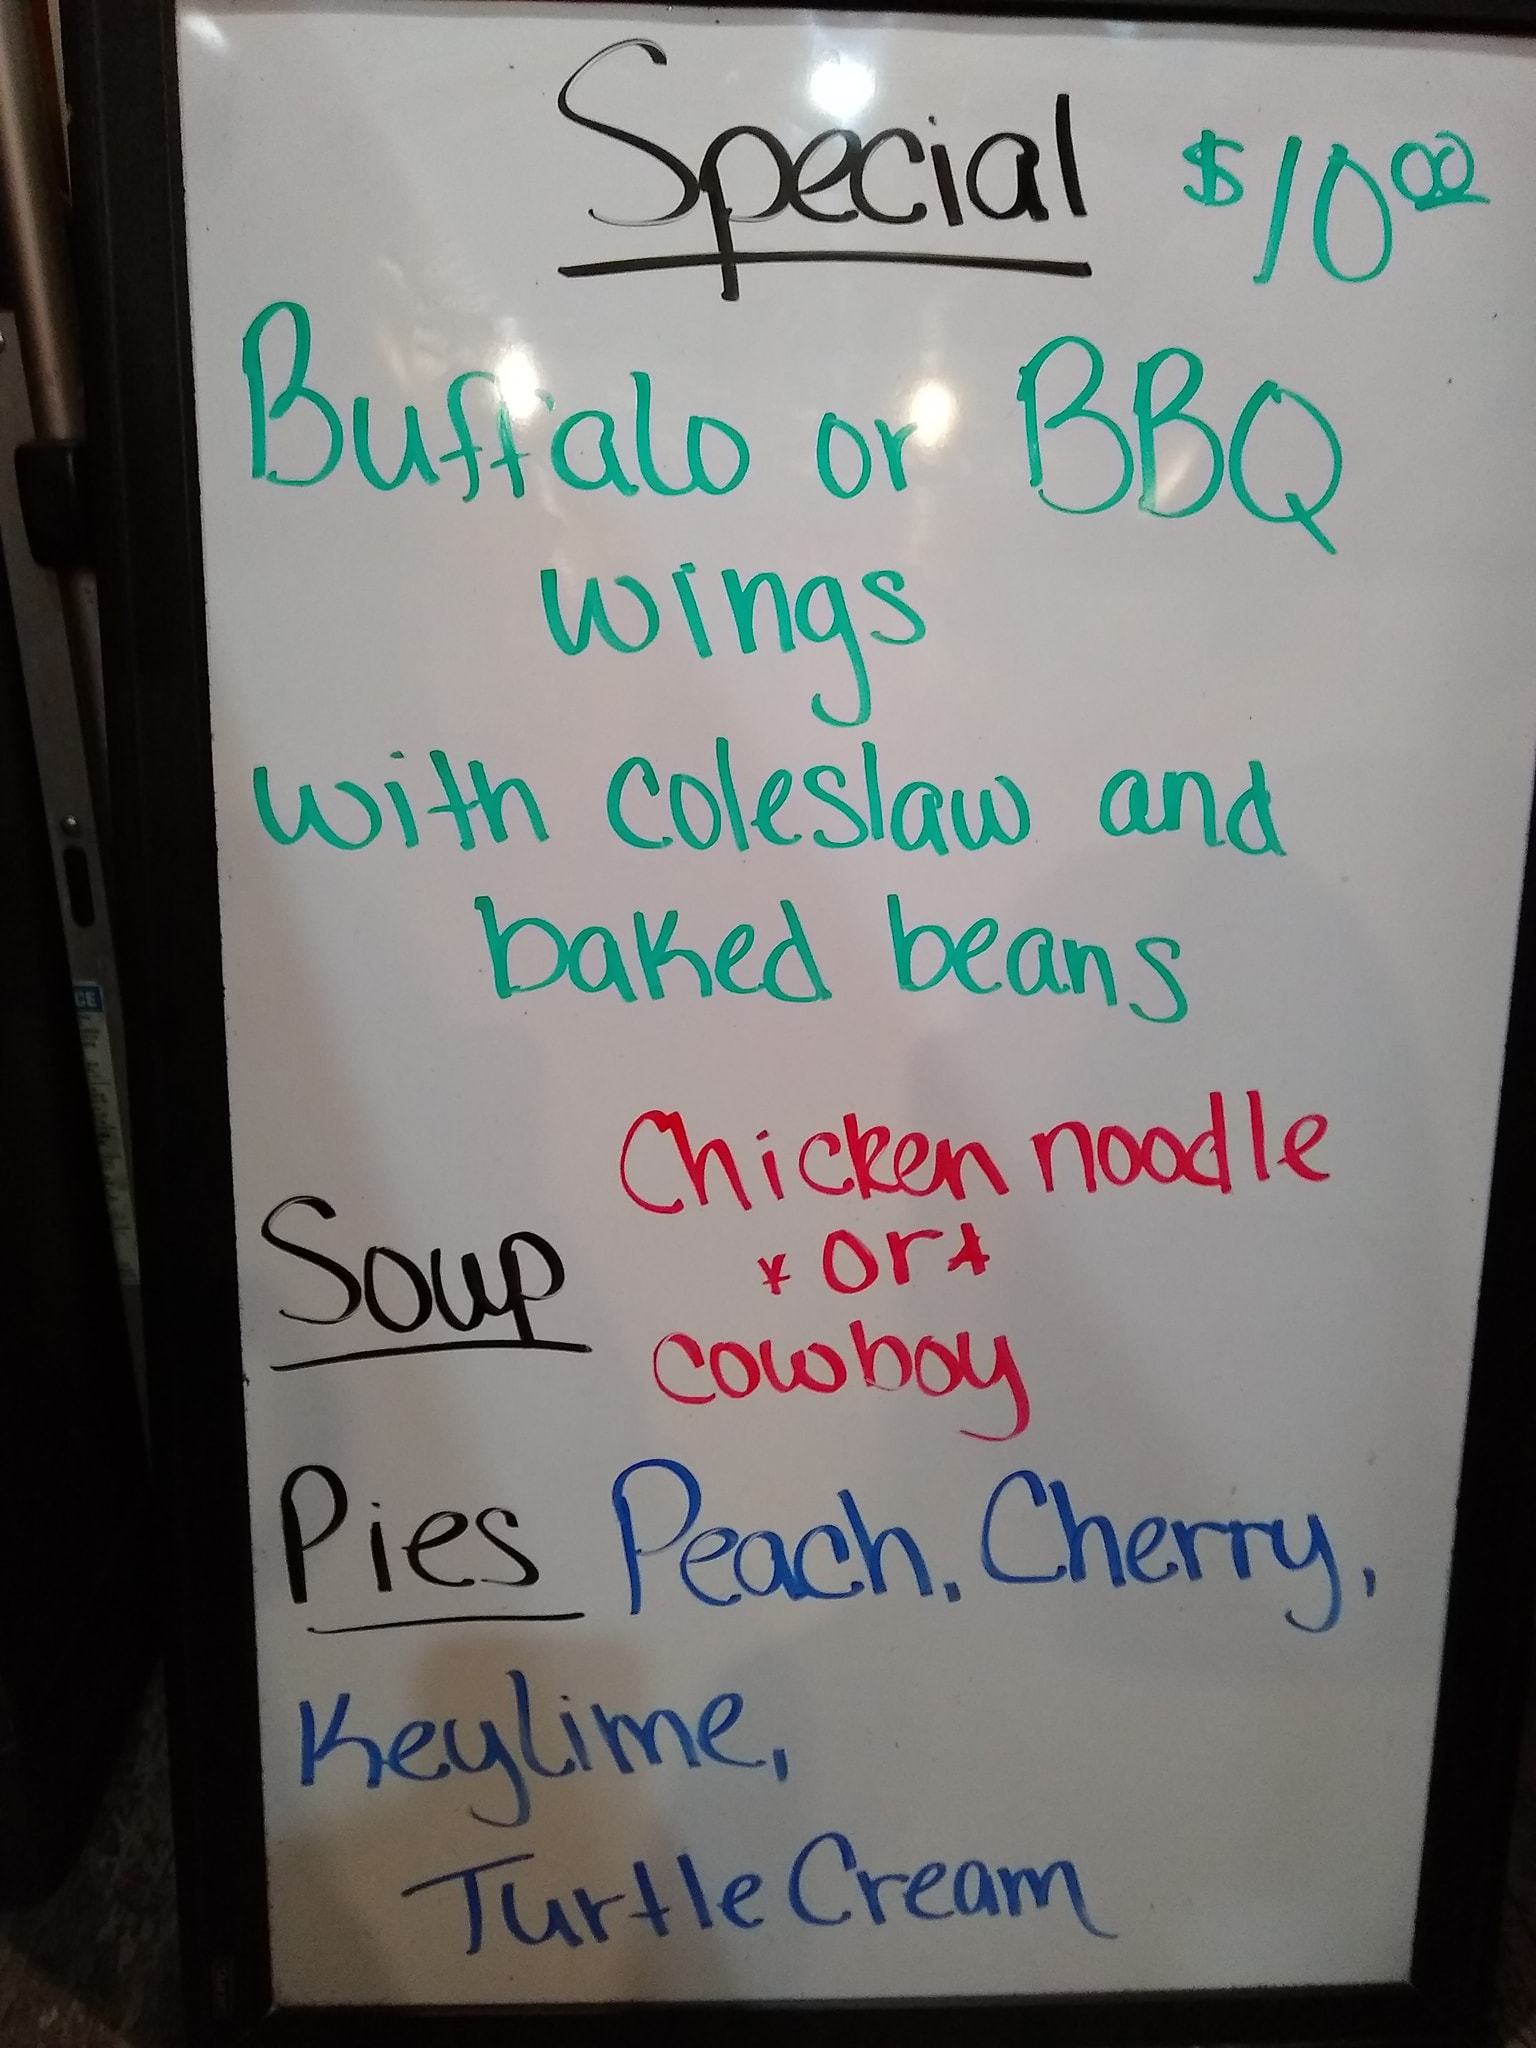 Special $10.00
Buffalo or BBQ
wings
with coleslaw and
baked beans
Chicken noodle
Soup * or *
cowboy
Pies Peach, Cherry,
Keylime,
Turtle Cream
CE